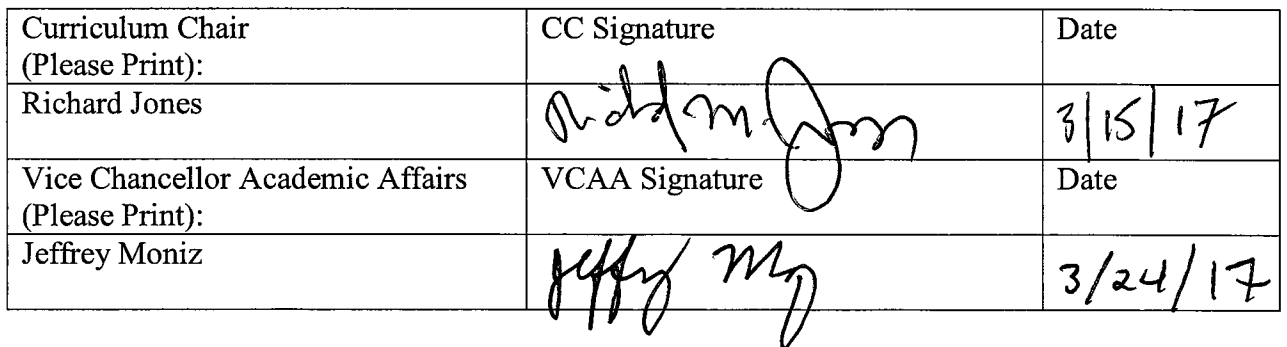 Curriculum Chair
(Please Print):
CC Signature
Date
Richard Jones
Richard M. Jones
3/15/17
Vice Chancellor Academic Affairs
(Please Print):
VCAA Signature
Date
Jeffrey Moniz
Jeffrey Mz
3/24/17